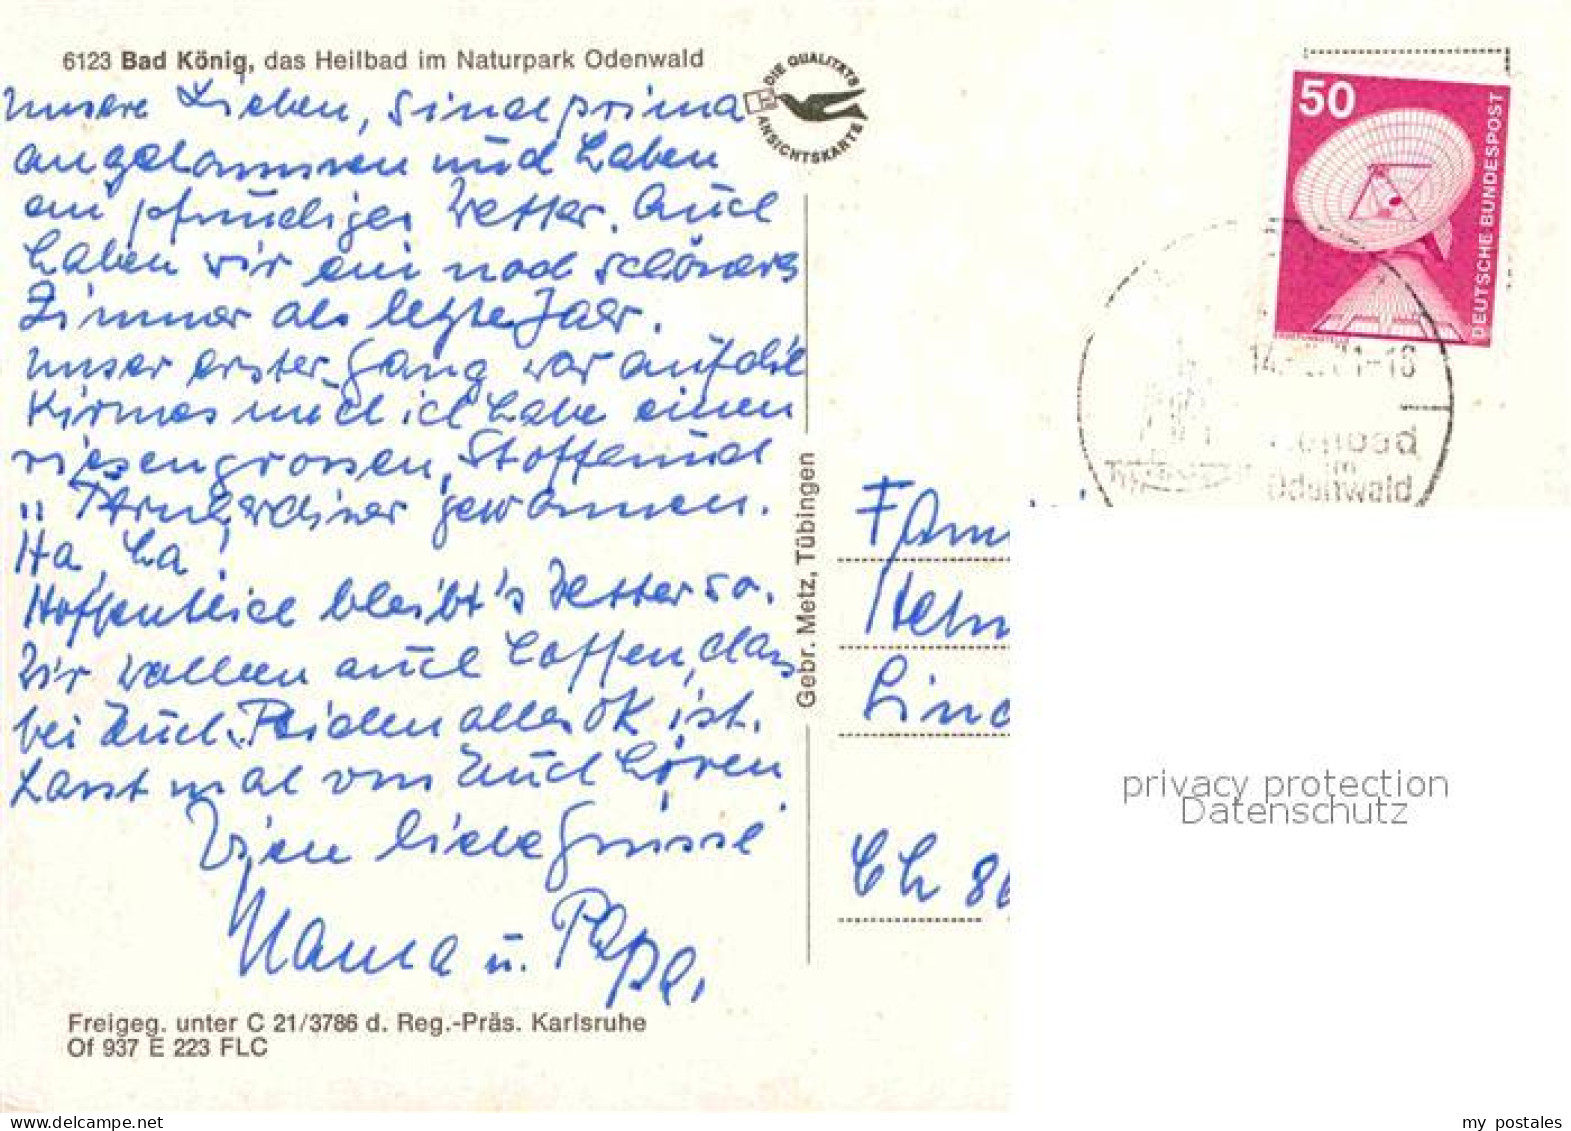 6123 Bad König, das Heilbad im Naturpark Odenwald
DIE QUALITÄTS
ANSICHTSKARTE
50
DEUTSCHE BUNDESPOST
Unsere Lieben, Sind prima
angekommen und haben
ein pfundiges Wetter. Auch
haben wir ein noch schöneres
Zimmer als letztes Jahr.
Unser erster Gang war auf die
Kirmes und ich habe einen
riesengrossen, Stoff und
" gewonnen.
Ha, ha!
Hoffentlich bleibt's Wetter so.
Wir wollen auch hoffen, dass
bei Euch Beiden alles OK ist.
Lasst mal von Euch hören
Viele liebe Grüsse
Mama u. Papa.
Gebr. Metz, Tübingen
Heilbad
im
Odenwald
Fam
CH 86
privacy protection
Datenschutz
Freigeg. unter C 21/3786 d. Reg.-Präs. Karlsruhe
Of 937 E 223 FLC
my postales